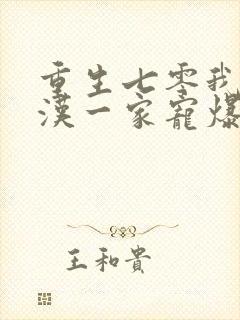 重生七零我
漢一家寵爆
王和貴